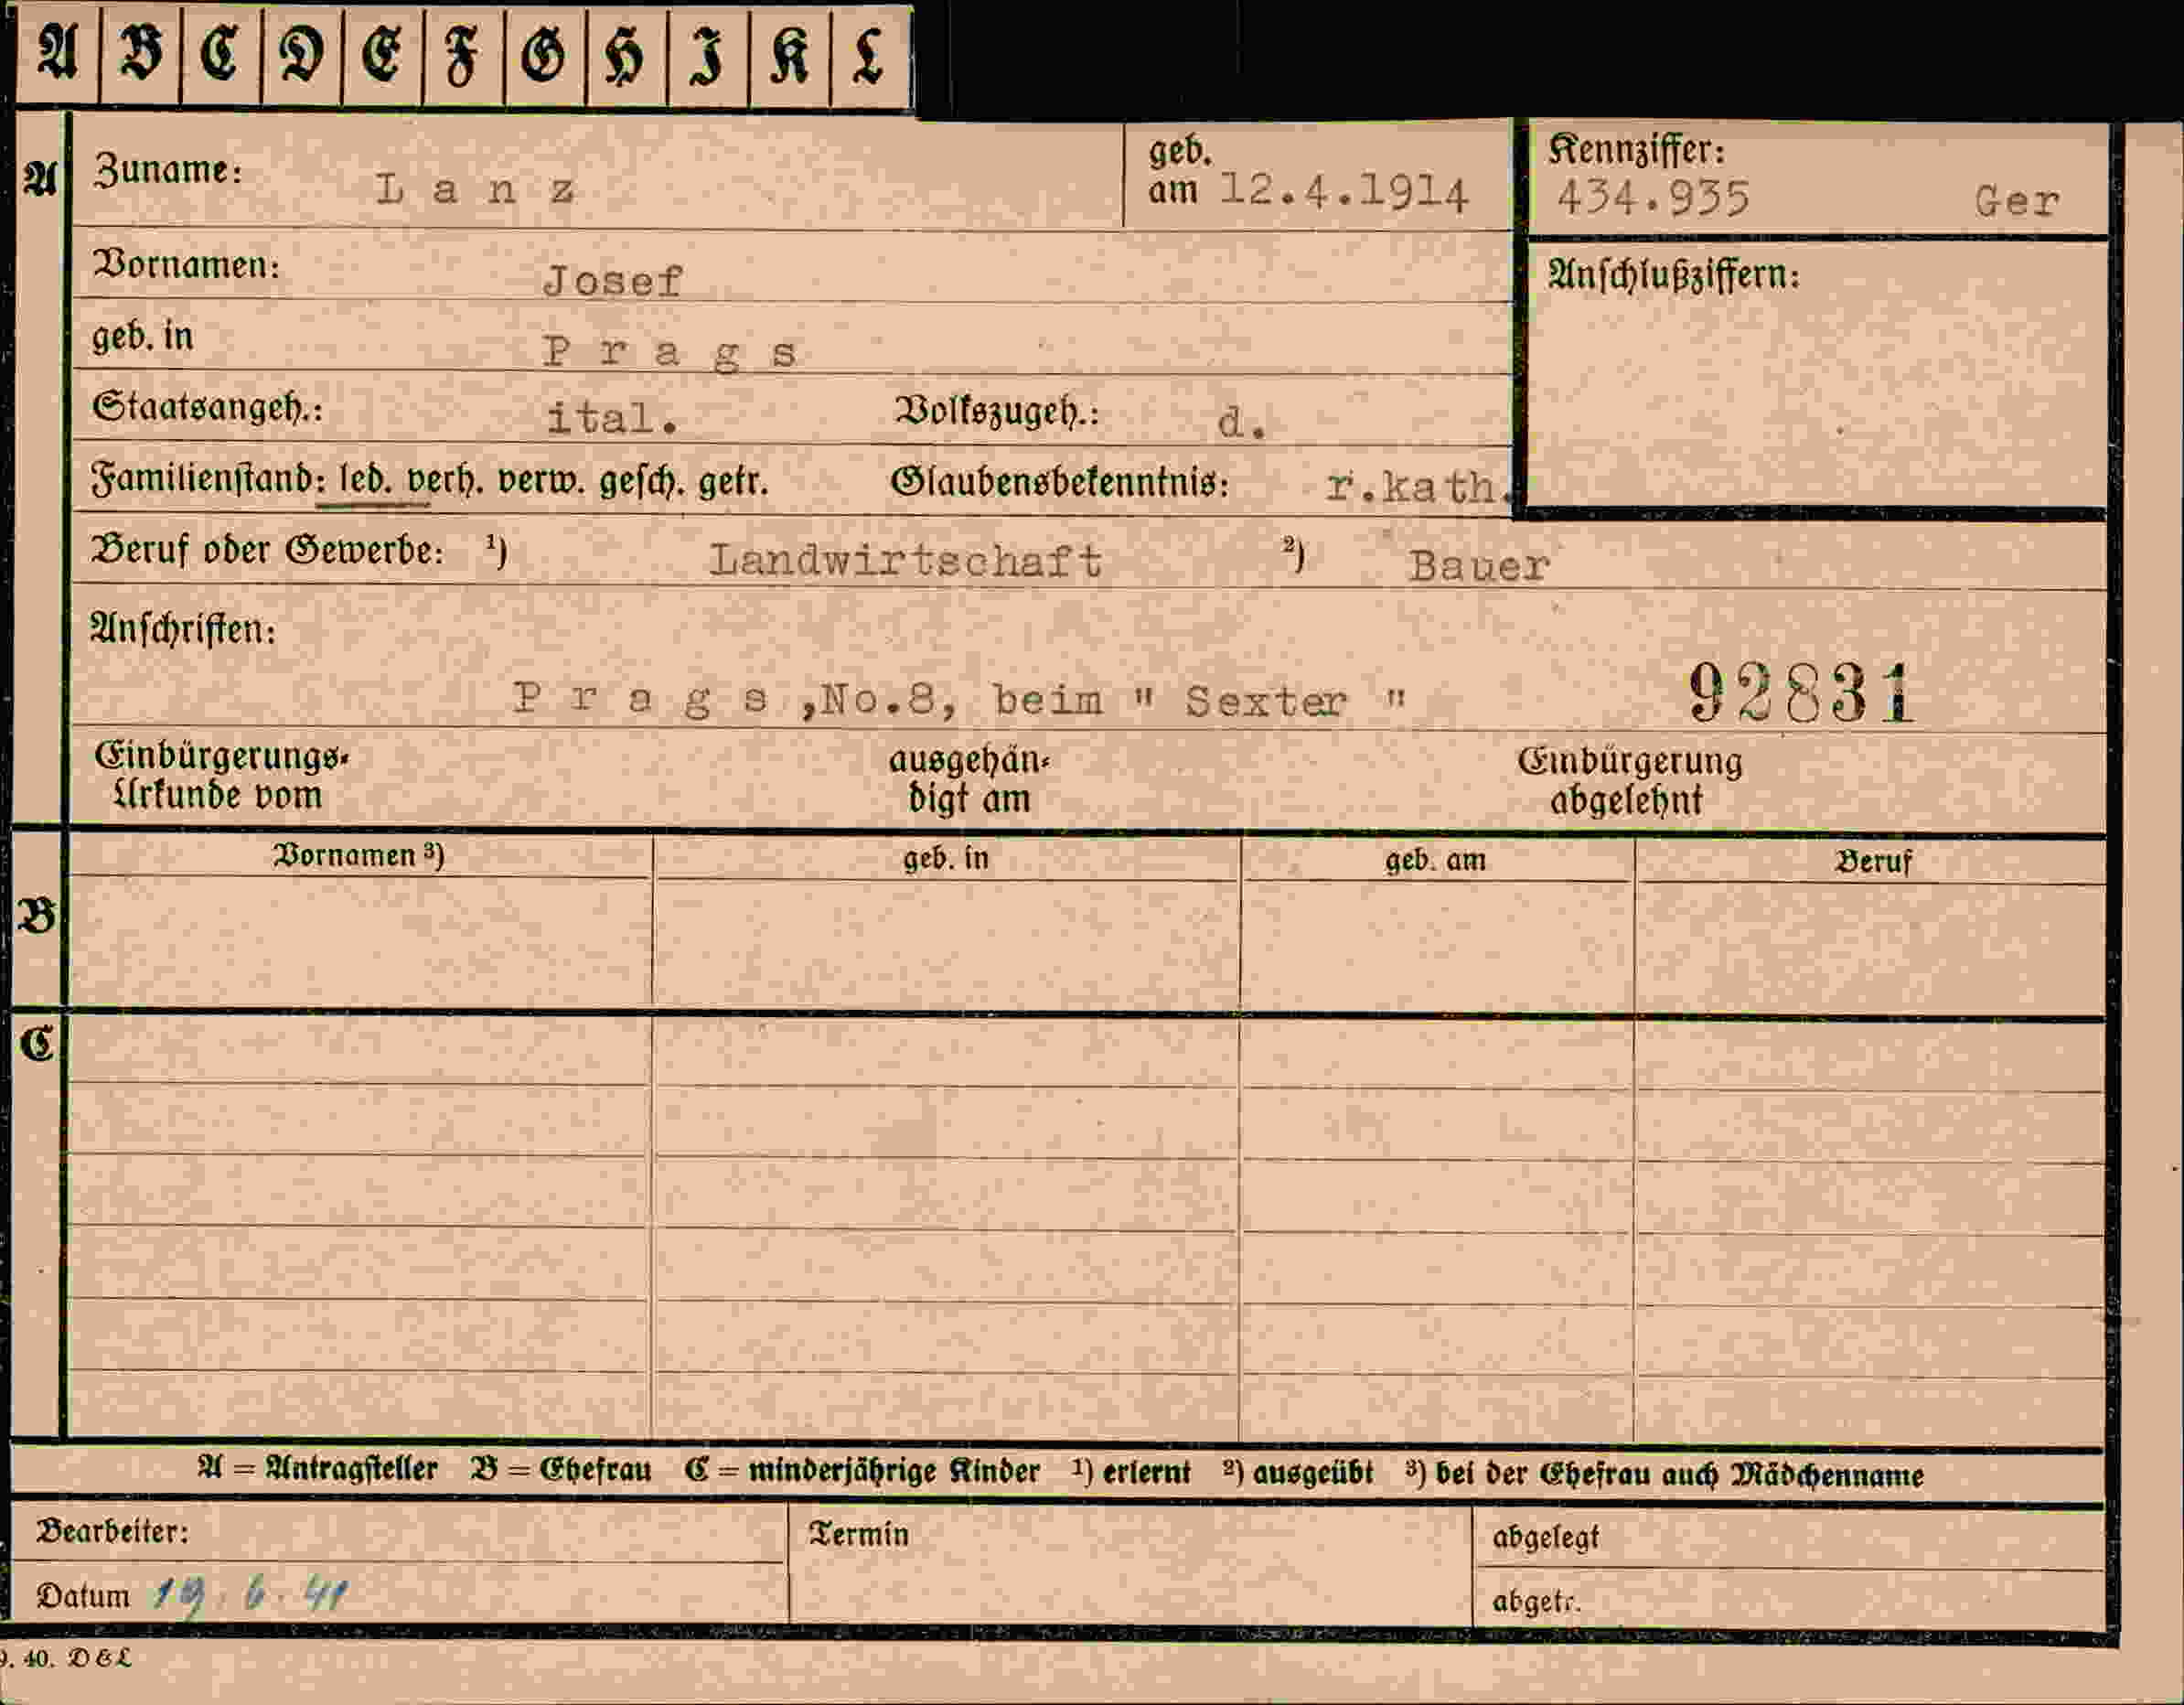 A B C D E F G H I K L
A Zuname: Lanz geb. am 12.4.1914 Kennziffer: 434.935 Ger
Vornamen: Josef Anschlußziffern:
geb. in Prags
Staatsangeh.: ital. Volkszugeh.: d.
Familienstand: led. verh. verw. gesch. getr. Glaubensbekenntnis: r.kath.
Beruf oder Gewerbe: ¹) Landwirtschaft ²) Bauer
Anschriften:
Prags, No.8, beim " Sexter " 92831
Einbürgerungs- ausgehän- Einbürgerung
Urkunde vom digt am abgelehnt
Vornamen ³) geb. in geb. am Beruf
B
C
A = Antragsteller B = Ehefrau C = minderjährige Kinder ¹) erlernt ²) ausgeübt ³) bei der Ehefrau auch Mädchenname
Bearbeiter: Termin abgelegt
Datum 19.6.41 abgetr.
9. 40. D&L